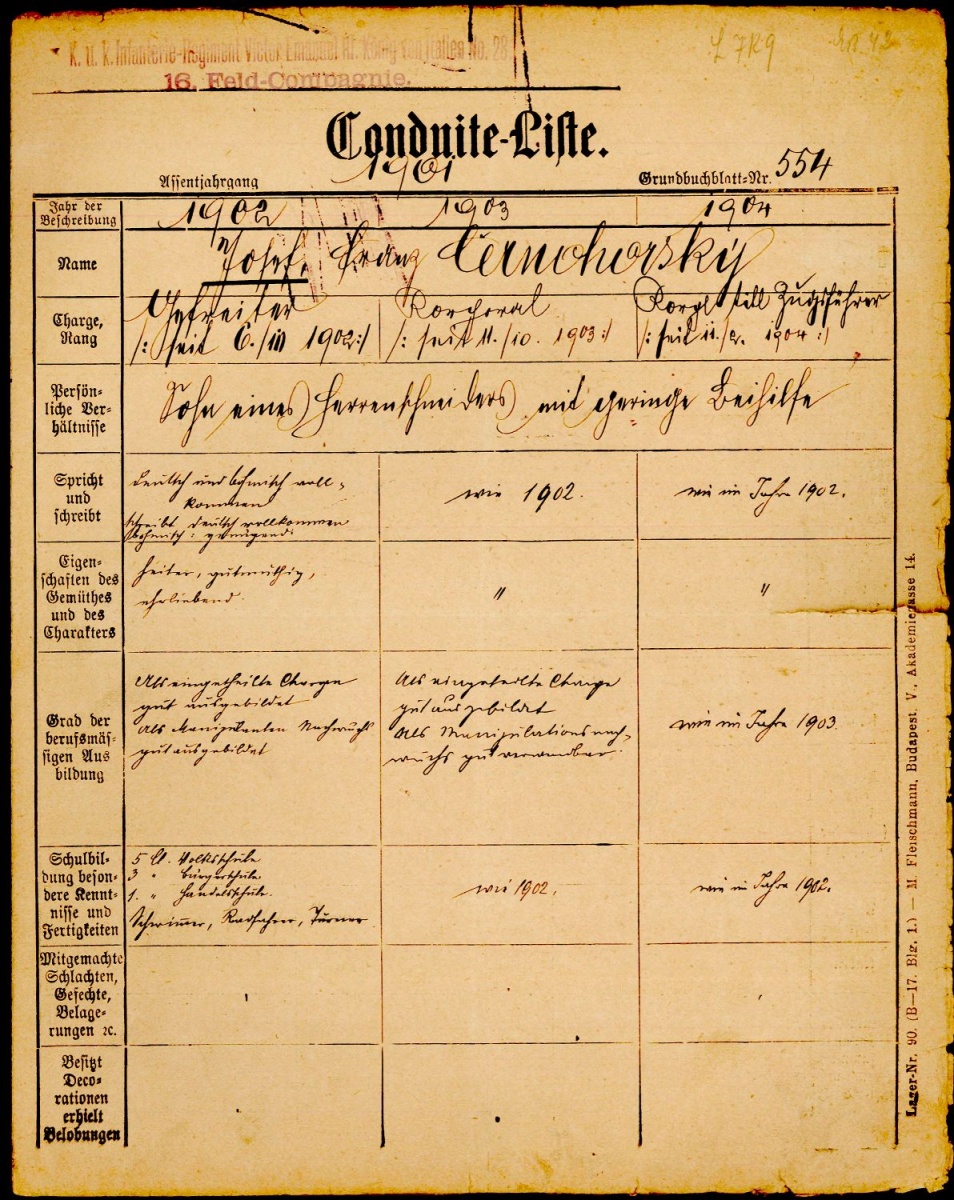 K. u. k. Infanterie-Regiment Victor Emanuel III. König von Italien No. 28
16. Feld-Compagnie.
Conduite-Liste.
Assentjahrgang 1901
Grundbuchblatt-Nr. 554
Jahr der Beschreibung
1902
1903
1904
Name
Josef Franz Černohorský
Charge,
Rang
Gefreiter
/: seit 6./10 1902 :/
Korporal
/: seit 11./10. 1903 :/
Zugsführer
1904 :/
Persön-
liche Ver-
hältnisse
Sohn eines Herrenschneiders mit geringe Beihilfe
Spricht
und
schreibt
deutsch und böhmisch voll-
kommen
schreibt deutsch vollkommen
böhmisch: genügend.
wie 1902.
wie im Jahre 1902.
Eigen-
schaften des
Gemüthes
und des
Charakters
heiter, gutmüthig,
ehrliebend.
"
"
Grad der
berufsmäs-
sigen Aus
bildung
Als eingetheilte Charge
gut ausgebildet
als Manipulanten Nachwuchs
gut ausgebildet
Als eingeteilte Charge
gut ausgebildet
als Manipulationsnach-
wuchs gut verwendbar.
wie im Jahre 1903.
Schulbil-
dung beson-
dere Kennt-
nisse und
Fertigkeiten
5 Cl. Volksschule
3 " Bürgerschule
1. " Handelsschule.
Schwimmer, Radfahrer, Turner.
wie 1902.
wie im Jahre 1902.
Mitgemachte
Schlachten,
Gefechte,
Belage-
rungen ꝛc.
Besitzt
Deco-
rationen
erhielt
Belobungen
Lager-Nr. 90. (B—17. Blg. 1.) — M. Fleischmann, Budapest. V., Akademiegasse 14.